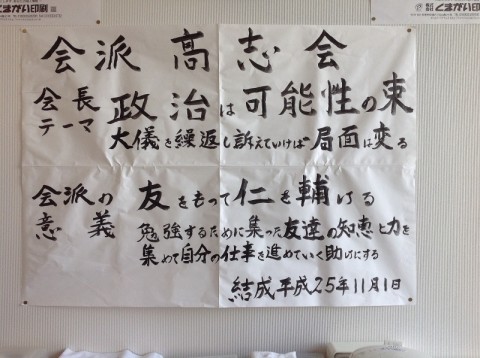 くまがい印刷
くまがい印刷
会派 高志会
会長 政治は可能性の束
テーマ 大儀を繰返し訴えていけば局面は変る
会派の 友をもって仁を輔ける
意義 勉強するために集った友達の知恵と力を
集めて自分の仕事を進めていく助けにする
結成平成25年11月1日